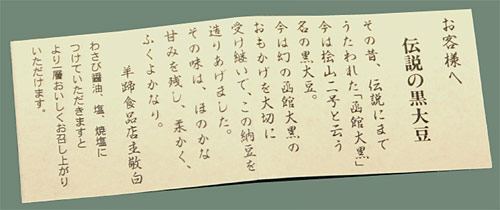 お客様へ
伝説の黒大豆
その昔、伝説にまで
うたわれた「函館大黒」
今は桧山二号と云う
名の黒大豆。
今は幻の函館大黒の
おもかげを大切に
受け継いで、この納豆を
造りあげました。
その味は、ほのかな
甘みを残し、柔かく、
ふくよかなり。
羊蹄食品店主敬白
わさび醤油、塩、焼塩に
つけていただきますと
より一層おいしくお召し上がり
いただけます。